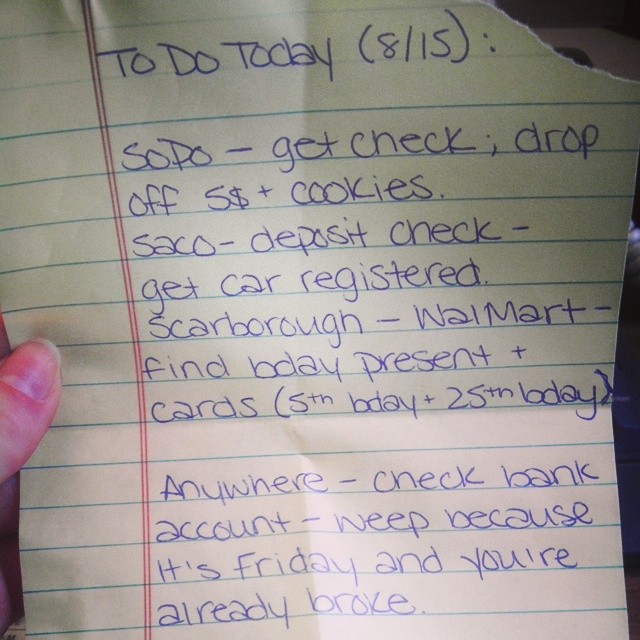 To Do Today (8/15):
SoPo - get check; drop
off 5$ + cookies.
Saco - deposit check -
get car registered.
Scarborough - WalMart -
find bday present +
cards (5th bday + 25th bday)
Anywhere - check bank
account - weep because
it's Friday and you're
already broke.